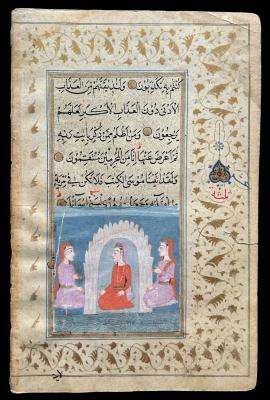 كُنتُم بِهِ تُكَذِّبُونَ وَلَنُذِيقَنَّهُم مِّنَ الْعَذَابِ
الْأَدْنَىٰ دُونَ الْعَذَابِ الْأَكْبَرِ لَعَلَّهُمْ
يَرْجِعُونَ وَمَنْ أَظْلَمُ مِمَّن ذُكِّرَ بِآيٰتِ رَبِّهِ
ثُمَّ أَعْرَضَ عَنْهَا إِنَّا مِنَ الْمُجْرِمِينَ مُنتَقِمُونَ
وَلَقَدْ آتَيْنَا مُوسَى الْكِتٰبَ فَلَا تَكُن فِي مِرْيَةٍ